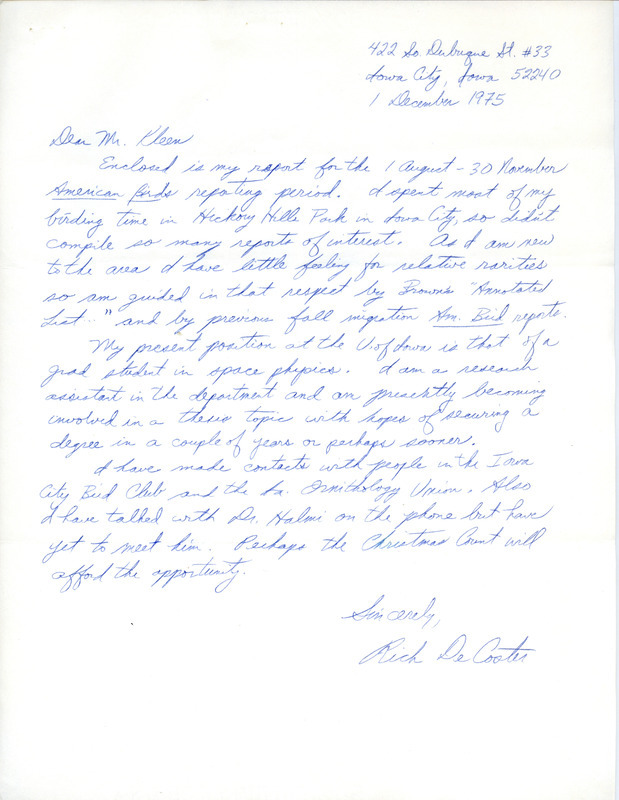 422 So. Dubuque St. #33
Iowa City, Iowa 52240
1 December 1975
Dear Mr. Kleen
Enclosed is my report for the 1 August - 30 November
American Birds reporting period. I spent most of my
birding time in Hickory Hills Park in Iowa City, so didn't
compile so many reports of interest. As I am new
to the area I have little feeling for relative rarities
so am guided in that respect by Brown's "Annotated
List.." and by previous fall migration Am. Bird reports.
My present position at the U of Iowa is that of a
grad student in space physics. I am a research
assistant in the department and am presently becoming
involved in a thesis topic with hopes of securing a
degree in a couple of years or perhaps sooner.
I have made contacts with people in the Iowa
City Bird Club and the Ia. Ornithology Union. Also
I have talked with Dr. Halmi on the phone but have
yet to meet him. Perhaps the Christmas Count will
afford the opportunity.
Sincerely,
Rich De Coster